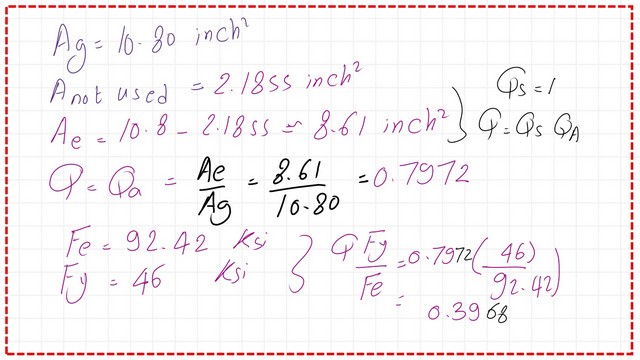 Ag = 10.80 inch²
A not used = 2.1855 inch²
Ae = 10.8 - 2.1855 = 8.61 inch²
Qs = 1
Q = Qs QA
Q = Qa = Ae/Ag = 8.61/10.80 = 0.7972
Fe = 92.42 Ksi
Fy = 46 Ksi
Q Fy/Fe = 0.7972 (46/92.42)
= 0.3968